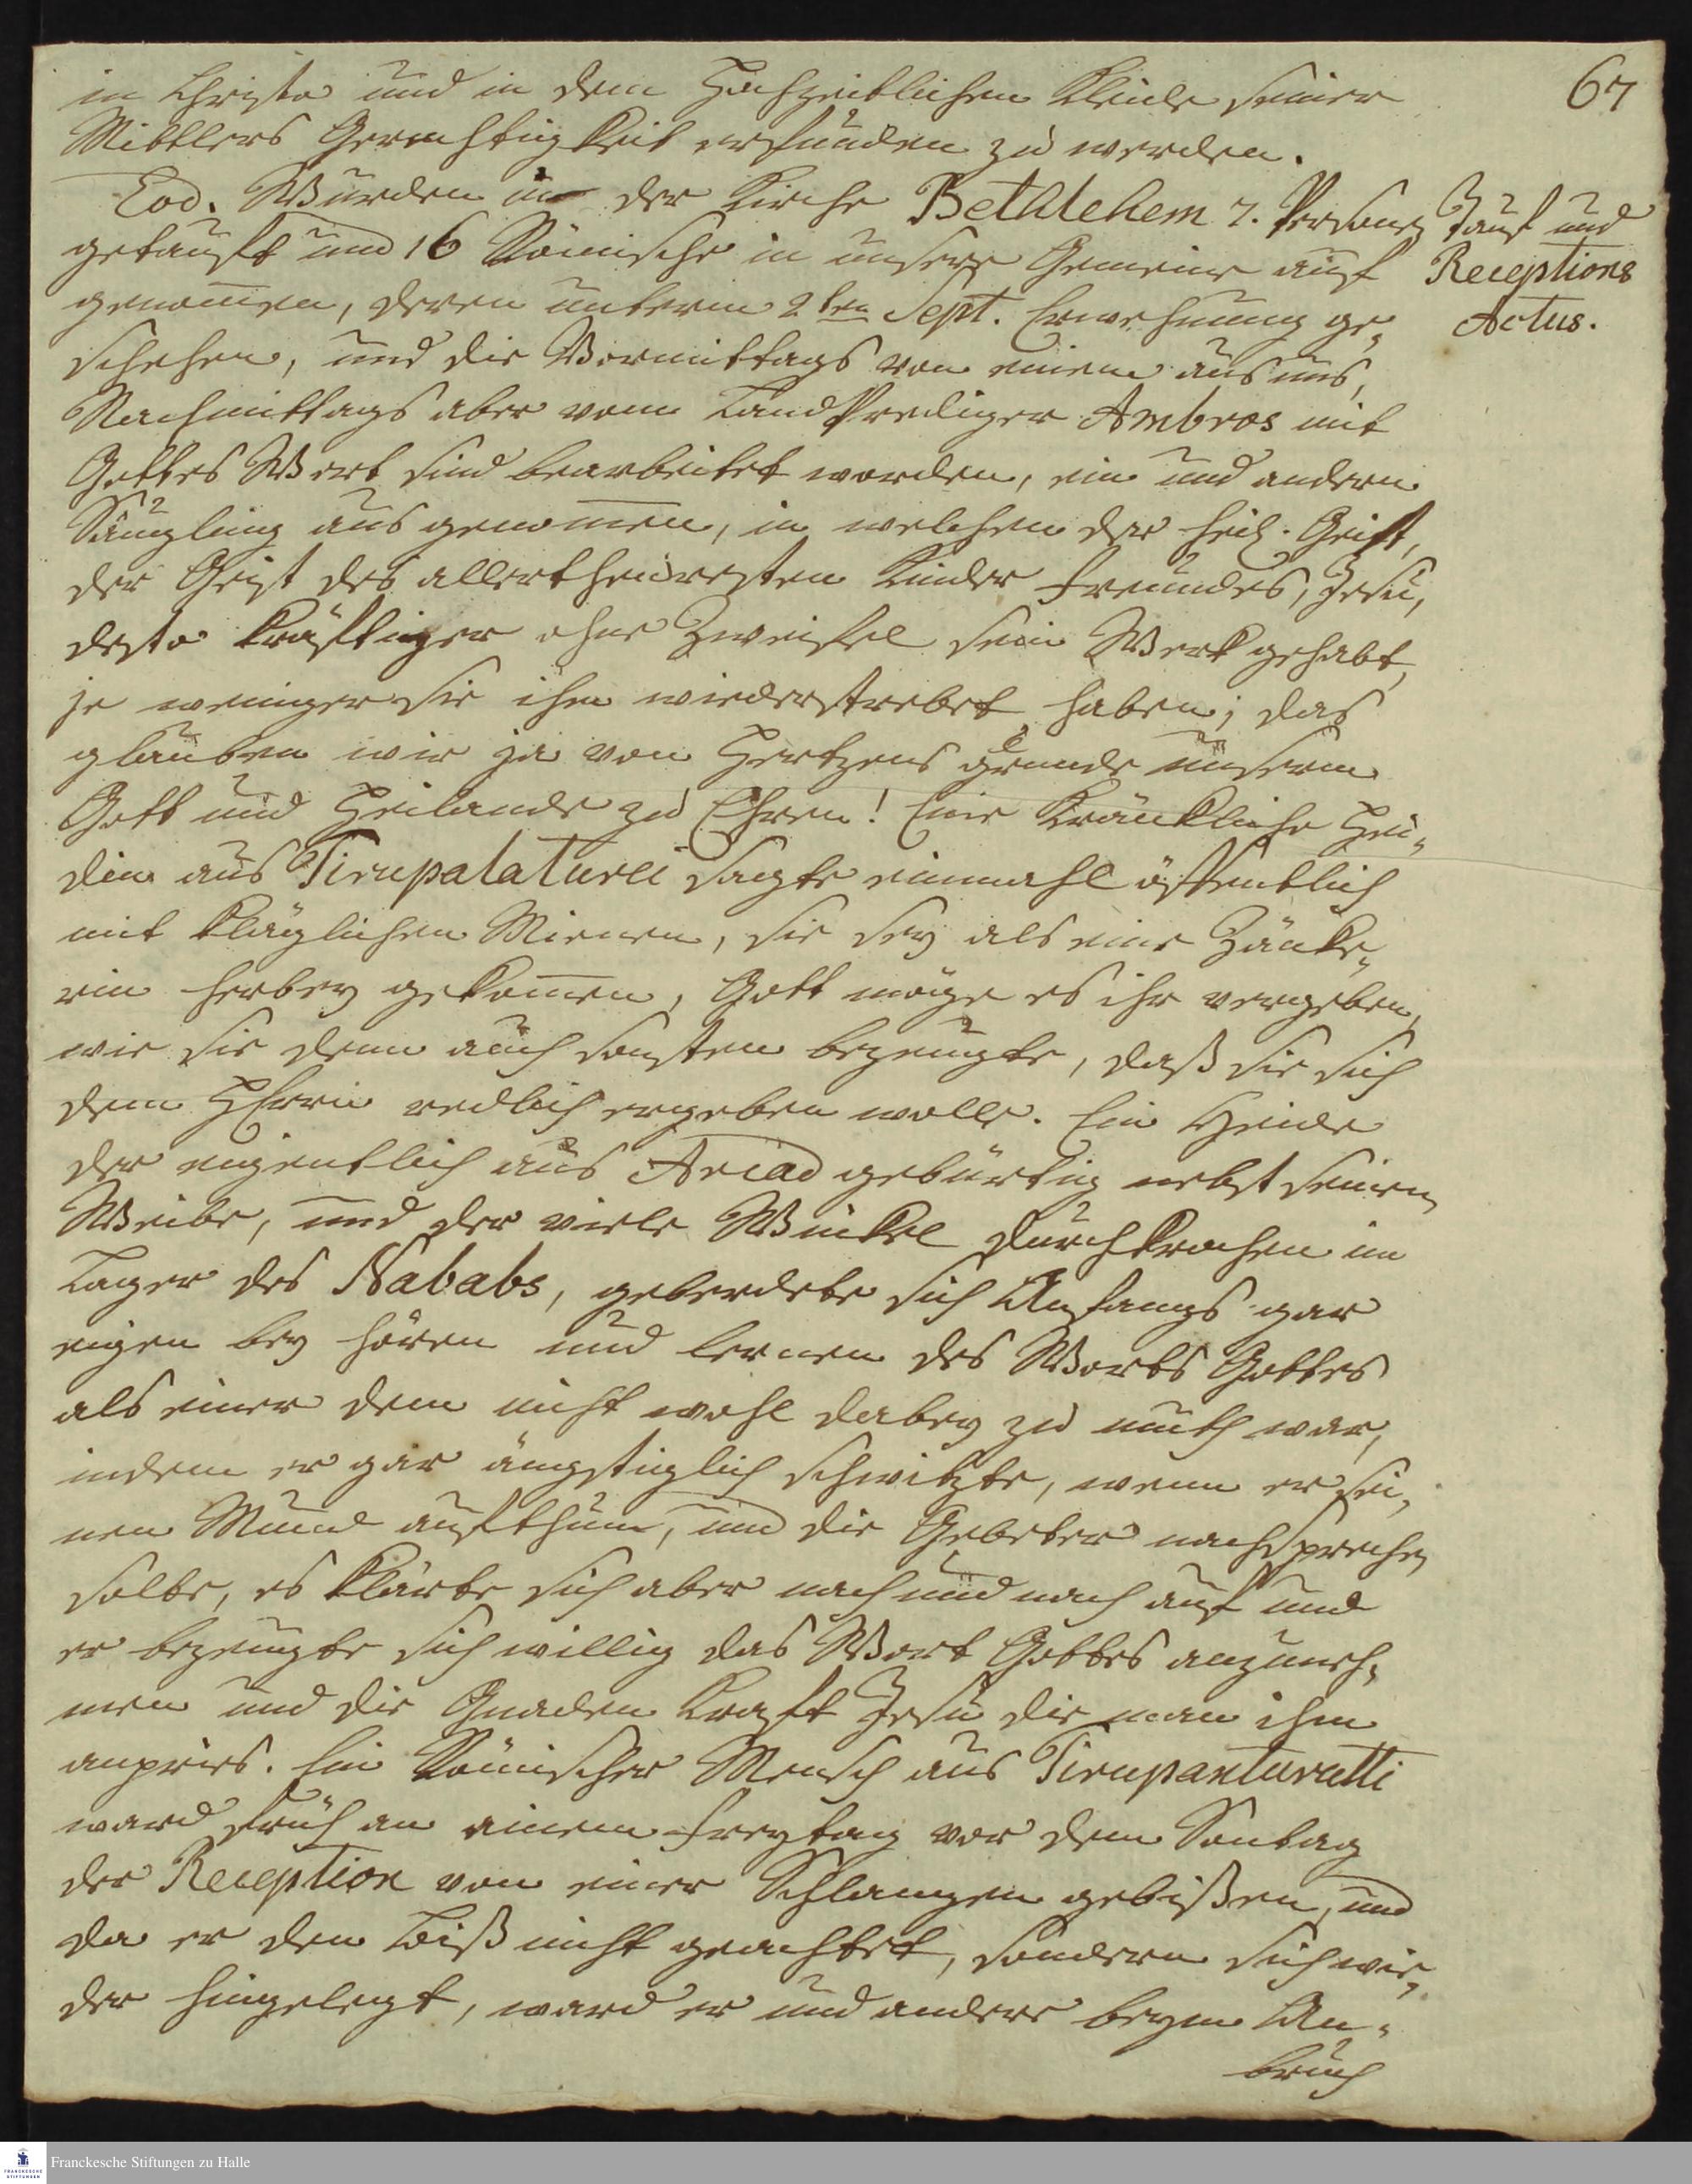 67
in Christo und in dem Hochzeitlichen Kleide seiner
Mittlers Gerechtigkeit erfunden zu werden.
Eod. Wurden in der Kirche Bethlehem 7. Persone
Tauf und
getauft und 16 Römische in unsere Gemeine auf
Receptions
genom̄en, deren unterm 2ten Sept. Erwehnung ge„
Actus.
schehen, und die Vormittags von einem aus uns,
Nachmittags aber vom LandPrediger Ambros mit
Gottes Wort sind bearbeitet worden, ein und andern
Säugling ausgenom̄en, in welchen der heil. Geist,
der Geist des allertheuresten Kinder Freundes, Jesu,
desto kräftiger ohne Zweifel sein Werk gehabt,
je weniger sie ihm wiederstrebet haben; das
glauben wir ja von Hertzens grunde unserm
Gott und Heilande zu Ehren! Eine Kränkliche Hei„
din aus Tirupalaturei sagte einmahl öffentlich
mit kläglichen Mienen, sie sey als eine Zänke„
rin herbey gekom̄en, Gott möge es ihr vergeben,
wie sie denn auch sonsten bezeugte, daß sie sich
dem HErrn redlich ergeben wolle. Ein Heide
der eigentlich aus Ariad gebürtig nebst seinen
Weibe, und der viele Winkel durchkrochen im
Lager des Nababs, geberdete sich Anfangs gar
eigen bey hören und lernen des Worts Gottes
als einer dem nicht wohl dabey zu muth war,
indem er gar ängstiglich schwitzte, wenn er sei„
nen Mund aufthun, und die Gebeter nachsprechen
solte, es klärte sich aber nach und nach auf und
er bezeugte sich willig das Wort Gottes anzuneh„
men und die Gnaden Kraft Jesu die man ihm
anpries. Ein Römischer Mensch aus Tirupanturutti
ward früh an einem Freytag vor dem Sontag
der Reception von einer Schlangen gebißen, und
da er den Biß nicht geachtet, sondern sich wie„
der hingelegt, ward er und andere beym An„
bruch
Franckesche Stiftungen zu Halle